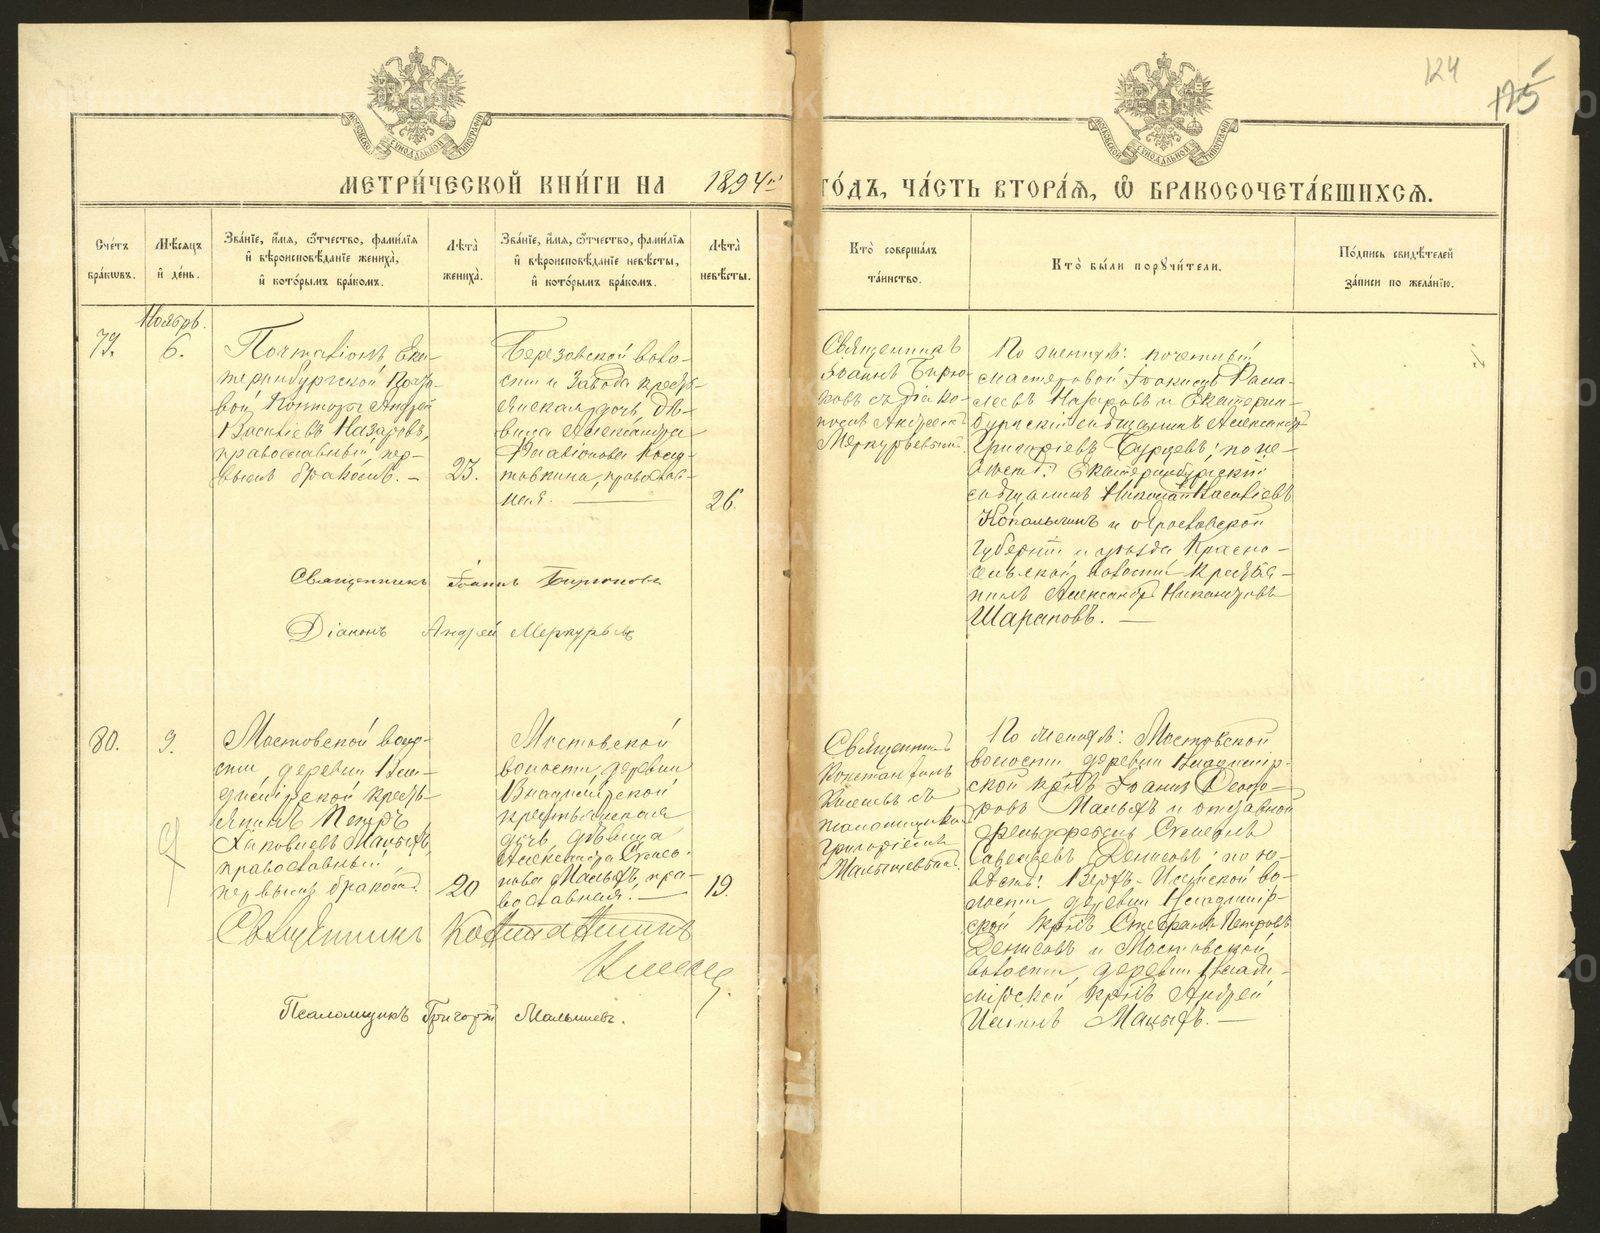 124
125
МОСКОВСКОЙ СѴНОДАЛЬНОЙ ТИПОГРАФІИ
МОСКОВСКОЙ СѴНОДАЛЬНОЙ ТИПОГРАФІИ
МЕТРИ́ЧЕСКОЙ КНИ́ГИ НА 1894й
ГО́ДЪ, ЧА́СТЬ ВТОРА́Я, Ѿ БРАКОСОЧЕТА́ВШИХСЯ.
Сче́тъ бра́кѡвъ.
Мѣ́сяцъ и҆ де́нь.
Зва́нїе, и҆́мя, ѻ҆́тчество, фами́лїя
и҆ вѣроисповѣ́данїе жениха̀,
и҆ кото́рымъ бра́комъ.
Лѣ́та жениха̀.
Зва́нїе, и҆́мя, ѻ҆́тчество, фами́лїя
и҆ вѣроисповѣ́данїе невѣ́сты,
и҆ кото́рымъ бра́комъ.
Лѣ́та невѣ́сты.
Кто̀ соверша́лъ
та́инство.
Кто̀ бы́ли порꙋчи́тели.
По́дпись свидѣ́телей
за́писи по жела́нїю.
Ноябрь.
79.
6.
Почталіонъ Ека-
теринбургской Почто-
вой Конторы Андрей
Василіевъ Назаровъ,
православный, пер-
вымъ бракомъ. —
23.
Березовской воло-
сти и Завода кресть-
янская дочь, дѣ-
вица Александра
православ-
ная. —
26.
Священникъ
Іоаннъ Бирю-
ковъ съ діако-
номъ Андреемъ
Меркурьевымъ.
По женихѣ:
мастеровой
Назаровъ и Екатерин-
бургскій мѣщанинъ Александръ
Григоріевъ по не-
вѣстѣ: Екатеринбургскій
мѣщанинъ Николай Василіевъ
и Ярославской
губерніи и уѣзда Красно-
сельской волости крестья-
нинъ Александръ Никаноровъ
Шараповъ. —
Священникъ Іоаннъ Бирюковъ
Діаконъ Андрей Меркурьевъ
80.
9.
Мостовской воло-
сти, деревни Вла-
димірской кресть-
янинъ Петръ
Іаковлевъ Малыхъ,
православный
первымъ бракомъ.
20
Мостовской
волости, деревни
Владимірской
крестьянская
дочь дѣвица
Александра
Малыхъ, пра-
вославная. —
19.
Священникъ
Константинъ
съ
псаломщикомъ
Григоріемъ
Малышевымъ.
По женихѣ: Мостовской
волости деревни Владимір-
ской крест. Іоаннъ Ѳеодо-
ровъ Малыхъ и отставной
фельдфебель
Савельевъ Денисовъ; по не-
вѣстѣ: Верх-Исетской во-
лости, деревни Владимір-
ской крест. Петровъ
Денисовъ и Мостовской
волости, деревни Влади-
мірской крест. Андрей
Малыхъ. —
Священникъ Константинъ
Псаломщикъ Григорій Малышевъ.